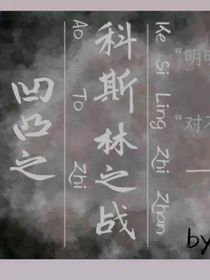 “明明
“对不
一
by
Ke Si Ling Zhi Zhan
科斯林之战
Ao To Zhi
凹凸之